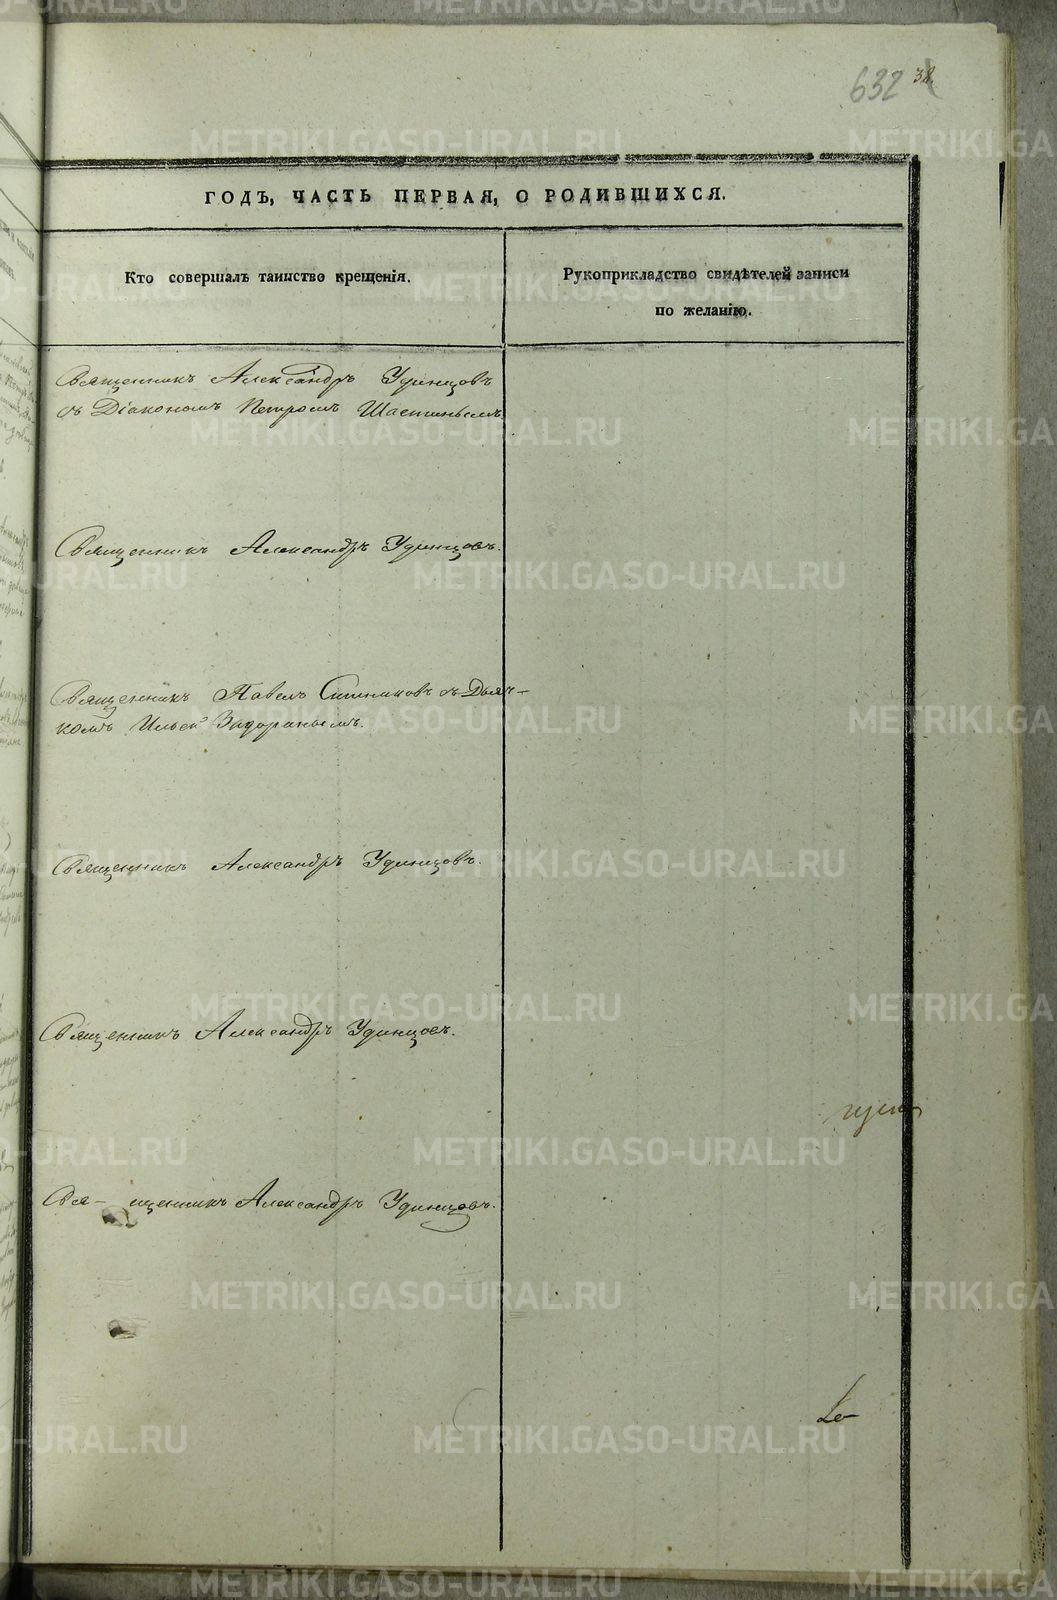 632 38.
ГОДЪ, ЧАСТЬ ПЕРВАЯ, О РОДИВШИХСЯ.
Кто совершалъ таинство крещенія.
Рукоприкладство свидѣтелей записи
по желанію.
Священникъ Александръ Удинцовъ
съ Діакономъ Петромъ Шастинымъ.
Священникъ Александръ Удинцовъ.
Священникъ Павелъ Ситниковъ съ Дьяч-
комъ Ильею Задоринымъ.
Священникъ Александръ Удинцовъ.
Священникъ Александръ Удинцовъ.
Свя- щенникъ Александръ Удинцовъ.
METRIKI.GASO-URAL.RU